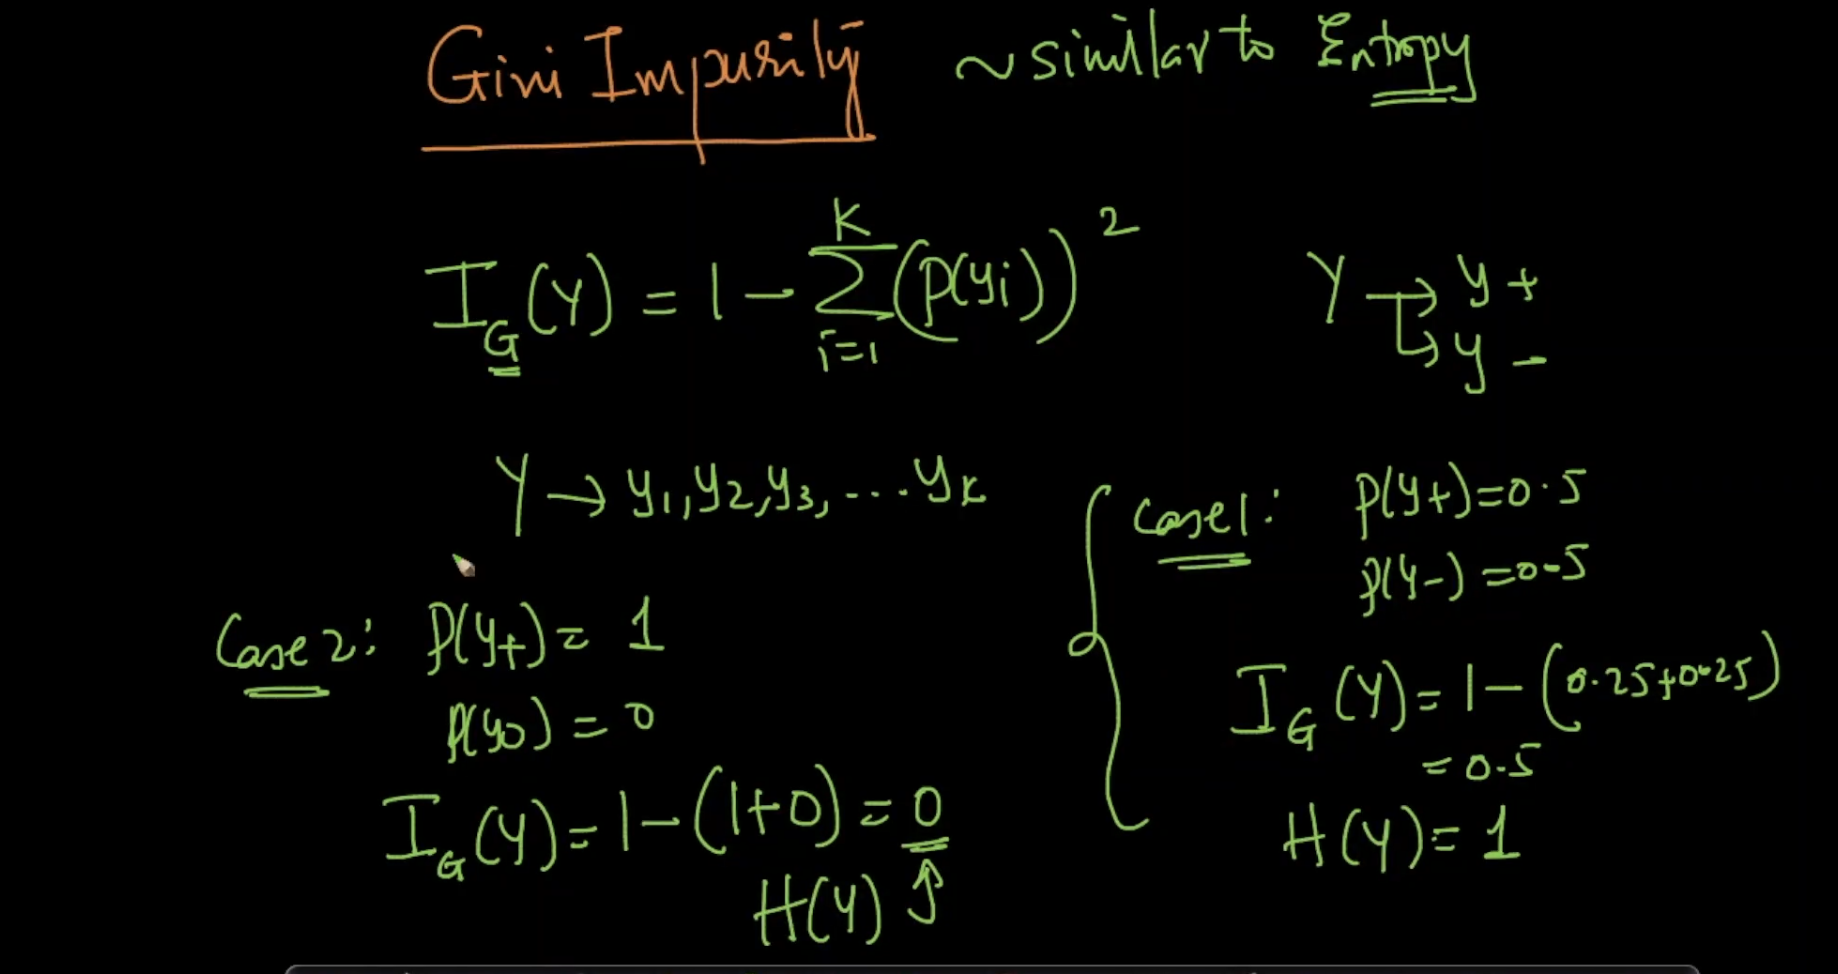 Gini Impurity ~ similar to Entropy
I_G(Y) = 1 - \sum_{i=1}^{K} (P(yi))^2
Y → y+
↳ y -
Y → y1, y2, y3, ... yk
Case 1: P(y+) = 0.5
P(y-) = 0.5
I_G(Y) = 1 - (0.25+0.25)
= 0.5
H(Y) = 1
Case 2: P(y+) = 1
P(y0) = 0
I_G(Y) = 1 - (1+0) = 0
H(Y) ↑